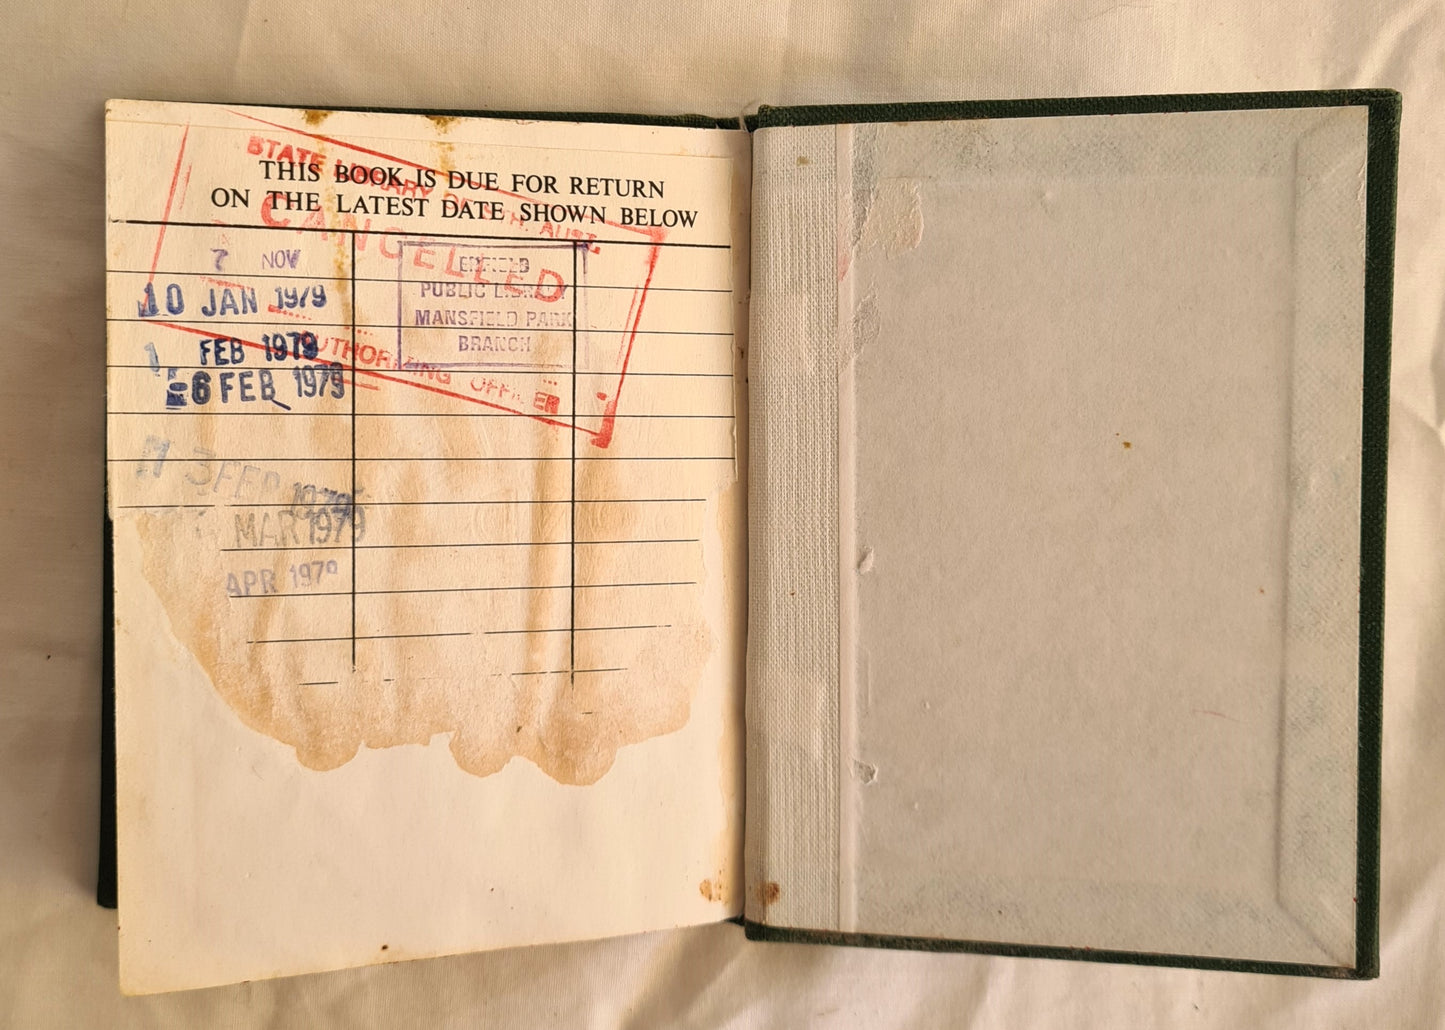 THIS BOOK IS DUE FOR RETURN
ON THE LATEST DATE SHOWN BELOW
STATE LIBRARY OF STH. AUST.
CANCELLED
AUTHORISING OFFICER
7 NOV
10 JAN 1979
FEB 1979
-6 FEB 1979
FEB 1979
MAR 1979
APR 1979
ENFIELD
PUBLIC LIBRARY
MANSFIELD PARK
BRANCH